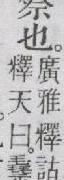 祭也。
廣雅釋詁
釋天曰。